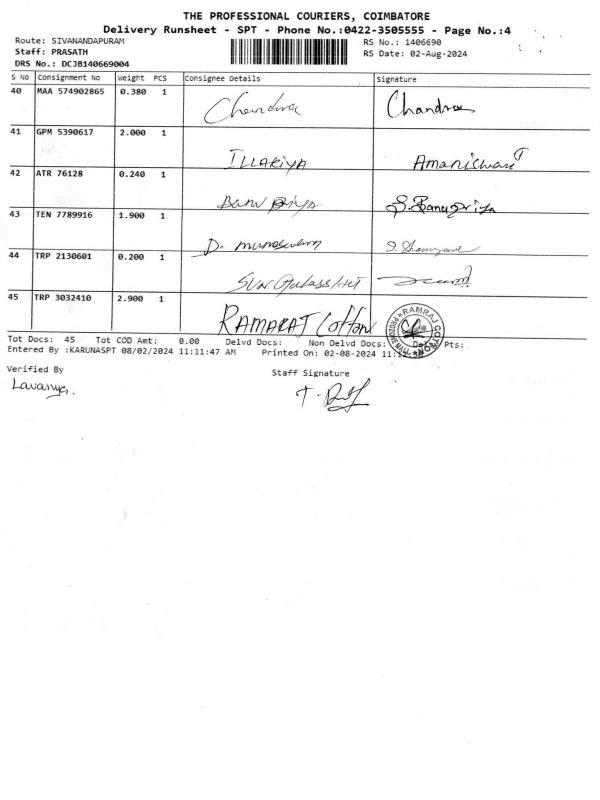 THE PROFESSIONAL COURIERS, COIMBATORE
Delivery Runsheet - SPT - Phone No.:0422-3505555 - Page No.:4
Route: SIVANANDAPURAM RS No.: 1406690
Staff: PRASATH RS Date: 02-Aug-2024
DRS No.: DCJB140669004
S No Consignment No Weight PCS Consignee Details Signature
40 MAA 574902865 0.380 1 Chandra Chandra
41 GPM 5390617 2.000 1 ILLAKIYA
42 ATR 76128 0.240 1 S.Banupriya
43 TEN 7789916 1.900 1
44 TRP 2130601 0.200 1
45 TRP 3032410 2.900 1 RAMARAJ Cotton RAMRAJ COTTON
Tot Docs: 45 Tot COD Amt: 0.00 Delvd Docs: Non Delvd Docs: Pts:
Entered By :KARUNASPT 08/02/2024 11:11:47 AM Printed On: 02-08-2024
Verified By
Staff Signature
Lavanya.